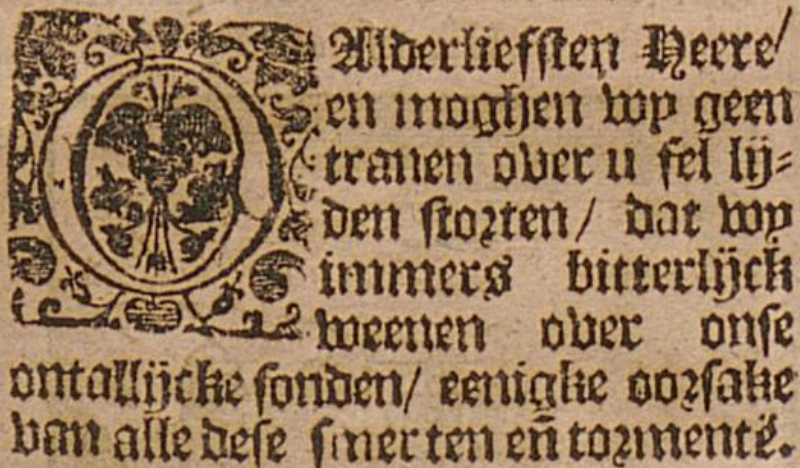 O Alderliefsten Heere/
en moghen wy geen
tranen over u fel lij-
den storten/ dat wy
immers bitterlijck
weenen over onse
ontallijcke sonden/ eenighe oorsake
van alle dese smerten eñ tormentē.